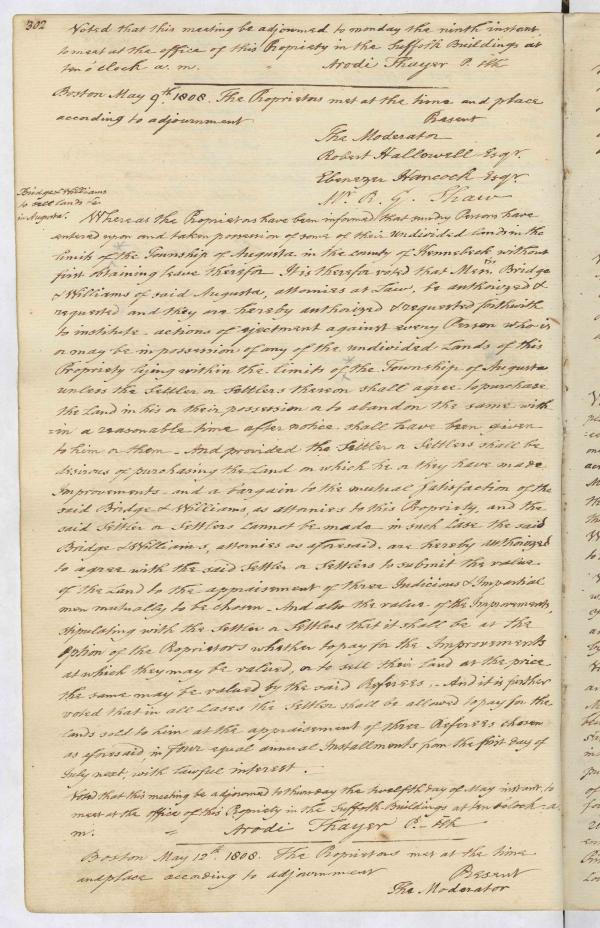 302
Voted that this meeting be adjourned to monday the ninth instant
to meet at the office of this Propriety in the Suffolk Buildings at
ten o'clock a. m. " Arodi Thayer P. Clk
Boston May 9th. 1808. The Proprietors met at the time and place
according to adjournment Present
The Moderator
Robert Hallowell Esqr.
Ebenezer Hancock Esqr.
Mr. R. G. Shaw
Bridge & Williams
to sell lands &c
in Augusta.
Whereas the Proprietors have been informed that sundry Persons have
entered upon and taken possession of some of their undivided Lands in the
limits of the Township of Augusta in the county of Kennebeck without
first obtaining leave therefor. It is therefor voted that Messrs. Bridge
& Williams of said Augusta, attornies at Law, be authorized &
requested and they are hereby authorized & requested forthwith
to institute actions of ejectment against every Person who is
or may be in possession of any of the undivided Lands of this
Propriety lying within the limits of the Township of Augusta
unless the Settler or Settlers thereon shall agree to purchase
the Land in his or their possession or to abandon the same with
=in a reasonable time after notice shall have been given
to him or them - And provided the Settler or Settlers shall be
desirous of purchasing the Land on which he or they have made
Improvements - and a bargain to the mutual satisfaction of the
said Bridge & Williams, as attornies to this Propriety, and the
said Settler or Settlers cannot be made - in such Case the said
Bridge & Williams, attornies as aforesaid are hereby authorized
to agree with the said Settler or Settlers to submit the value
of the Land to the appraisement of three Judicious & Impartial
men mutually to be chosen - And also the value of the Improvements,
stipulating with the Settler or Settlers that it shall be at the
option of the Proprietors whether to pay for the Improvements
at which they may be valued, or to sell their land at the price
the same may be valued by the said Referees. - And it is further
voted that in all Cases the Settler shall be allowed to pay for the
lands sold to him at the appraisement of three Referees chosen
as aforesaid in four equal annual Installments from the first day of
July next, with lawful interest.
Voted that this meeting be adjourned to thursday the twelfth day of May instant, to
meet at the office of this Propriety in the Suffolk Buildings at ten o'clock a
m. " Arodi Thayer P. Clk
Boston May 12th. 1808. The Proprietors met at the time
and place according to adjournment Present
The Moderator